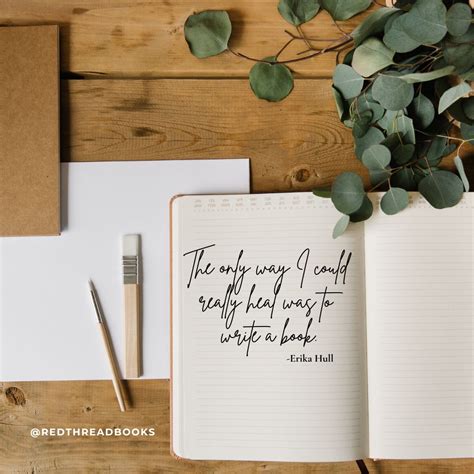 The only way I could
really heal was to
write a book.
-Erika Hull
@REDTHREADBOOKS